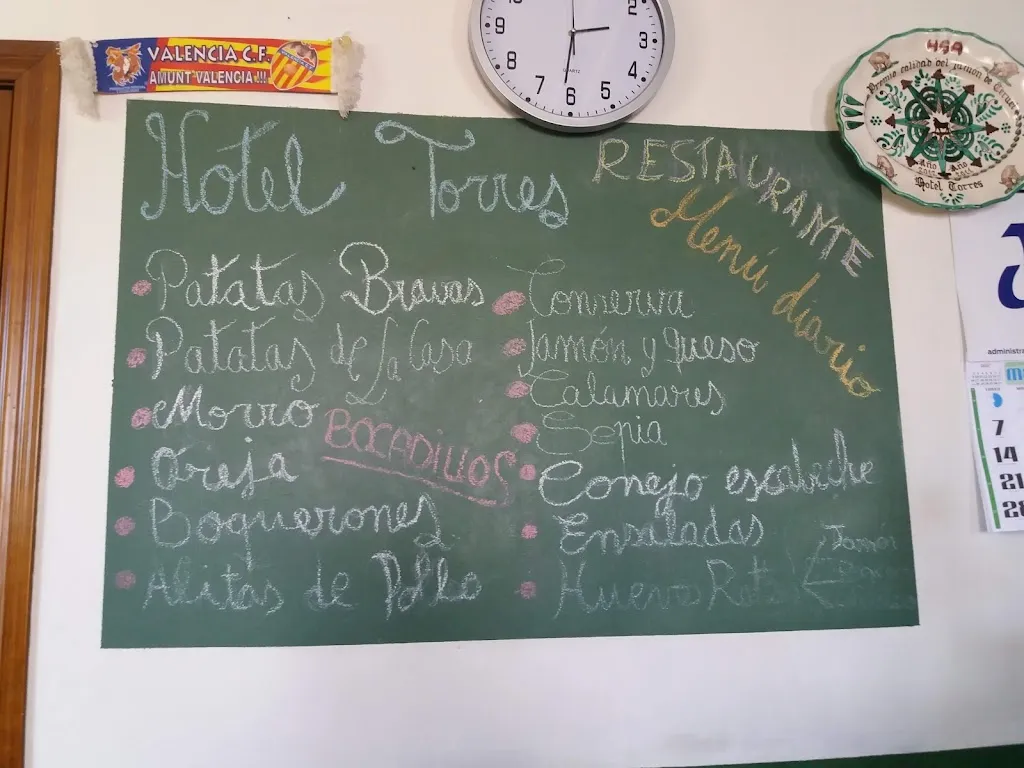 VALENCIA C.F.
AMUNT VALENCIA !!!
10
9
8
7
6
5
4
3
2
QUARTZ
Premio calidad del Jamón de Teruel
Año
Año
Hotel Torres
Hotel Torres
RESTAURANTE
Menú diario
Patatas Bravas
Patatas de La Casa
Morro
Oreja
Boquerones
Alitas de Pollo
BOCADILLOS
Conserva
Jamón y Queso
Calamares
Sepia
Conejo escabeche
Ensaladas
Huevos Rotos
Jamón
administra
7
14
21
28